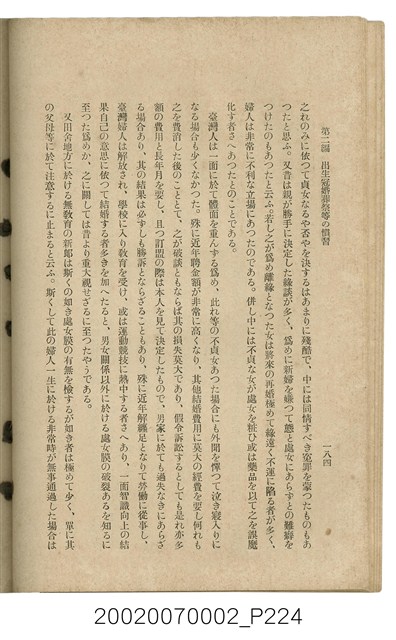 第二編 出生冠婚葬祭等の慣習
一八四
之れのみに依つて貞女なるや否やを決するはあまりに殘酷で、中には同情すべき冤罪を蒙つたものもあ
つたと思ふ。又昔は親が勝手に決定した緣談が多く、爲めに新婦を嫌つて態と處女にあらずとの難癖を
つけたのもあつたと云ふ。若し之が爲め離緣となつた女は將來の再婚極めて緣遠く不運に陷る者が多く、
婦人は非常に不利な立場にあつたのである。併し中には不貞な女が處女を粧ひ或は藥品を以て之を誤魔
化す者さへあつたとのことである。
臺灣人は一面に於て體面を重んずる爲め、此れ等の不貞女あつた場合にも外聞を憚つて泣き寢入りに
なる場合も少くなかつた。殊に近年聘金額が非常に高くなり、其他結婚費用に莫大の經費を要し何れも
之を費消した後のこととて、之が破談ともならば其の損失莫大であり、假令訴訟するとしても是れ亦多
額の費用と長年月を要し、且つ訂盟の際は本人を見て決定したもので、男家に於ても過失なきにあらざ
る場合あり、其の結果は必ずしも勝訴とならざることもあり、殊に近年解纏足となりて勞働に從事し、
臺灣婦人は解放され、學校に入り敎育を受け、或は運動競技に熱中する者さへあり、一面智識向上の結
果自己の意思に依つて結婚する者多きを加へたると、男女關係以外に於ける處女膜の破裂あるを知るに
至つた爲めか、之に關しては昔より重大視せざるに至つたやうである。
又田舍地方に於ける無敎育の新郞は斯くの如き處女膜の有無を檢するが如き者は極めて少く、單に其
の父母等に於て注意するに止まると云ふ。斯くして此の婦人一生に於ける非常時が無事通過した場合は
20020070002_P224